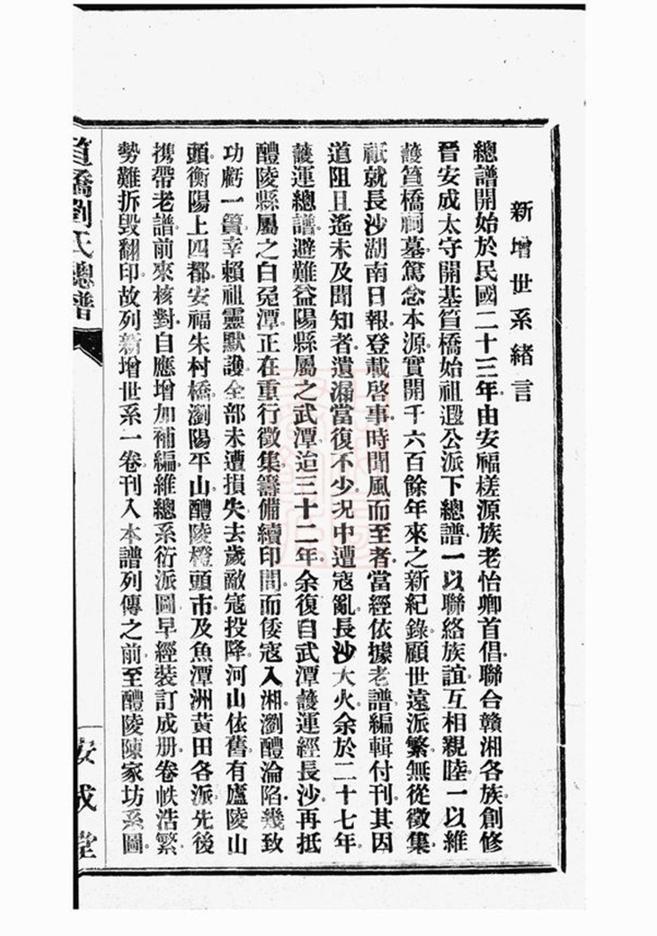 新增世系緒言
總譜開始於民國二十三年由安福槎源族老怡卿首倡聯合贛湘各族創修
晉安成太守開基笪橋始祖遐公派下總譜一以聯絡族誼互相親睦一以維
護笪橋祠墓篤念本源實開千六百餘年來之新紀錄顧世遠派繁無從徵集
祇就長沙湖南日報登載啓事時聞風而至者當經依據老譜編輯付刊其因
道阻且遙未及聞知者遺漏當復不少況中遭寇亂長沙大火余於二十七年
護運總譜避難益陽縣屬之武潭迨三十二年余復自武潭護運經長沙再抵
醴陵縣屬之白兔潭正在重行徵集籌備續印間而倭寇入湘瀏醴淪陷幾致
功虧一簣幸賴祖靈默護全部未遭損失去歲敵寇投降河山依舊有廬陵山
頭衡陽上四都安福朱村橋瀏陽平山醴陵橙頭市及魚潭洲黃田各派先後
攜帶老譜前來核對自應增加補編維總系衍派圖早經裝訂成册卷帙浩繁
勢難拆毀翻印故列新增世系一卷刊入本譜列傳之前至醴陵陳家坊系圖
笪橋劉氏總譜
安成堂